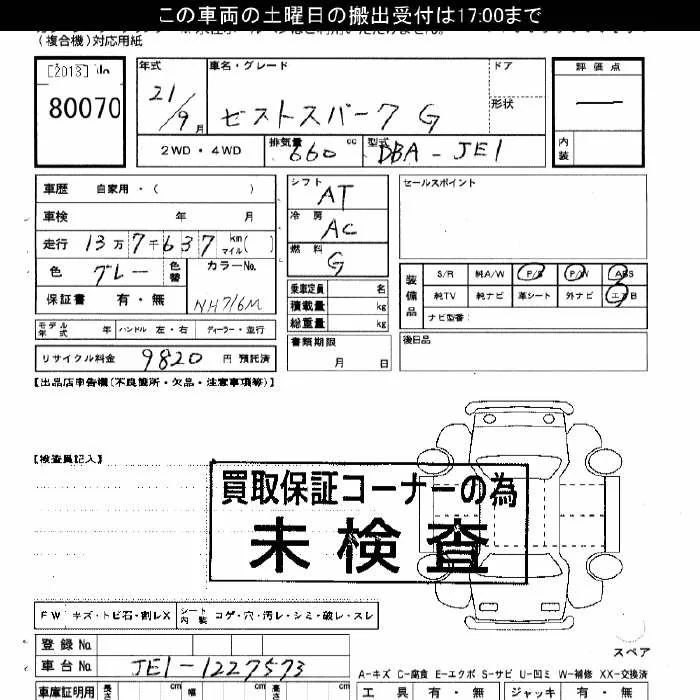 この車両の土曜日の搬出受付は17:00まで
(複合機)対応用紙
[2013] No
80070
年式 車名・グレード ドア 評価点
21/9月 ゼストスパーク G 形状 —
2WD・4WD 排気量 660 cc 型式 DBA-JE1 内装
車歴 自家用・( )
車検 年 月
走行 13万7千637 km マイル( )
色 グレー 色替 カラーNo. NH716M
保証書 有・無
シフト AT
冷房 AC
燃料 G
乗車定員 名
積載量 kg
総重量 kg
書類期限 月 日
セールスポイント
装備品 S/R 純A/W P/S P/W ABS
純TV 純ナビ 革シート 外ナビ エアB
ナビ型番:
後日品
モデル年式 年 ハンドル 左・右 ディーラー・並行
リサイクル料金 9820 円 預託済
【出品店申告欄(不良箇所・欠品・注意事項等)】
【検査員記入】
買取保証コーナーの為
未検査
FW キズ・トビ石・割レX シート内装 コゲ・穴・汚レ・シミ・破レ・スレ
スペア
登録No.
車台No. JE1-1227573
A-キズ C-腐食 E-エクボ S-サビ U-凹ミ W-補修 XX-交換済
車庫証明用 長さ cm 幅 cm 高さ cm
工具 有・無 ジャッキ 有・無